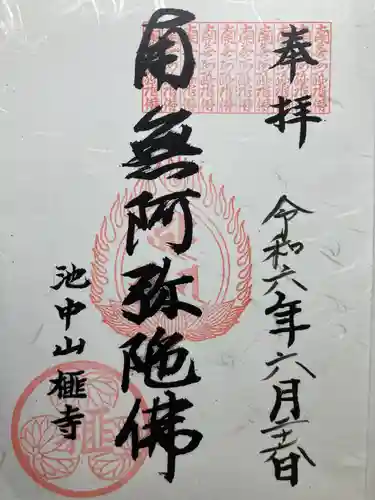 奉拝
令和六年六月二十六日
南無阿弥陀佛
池中山
榧寺